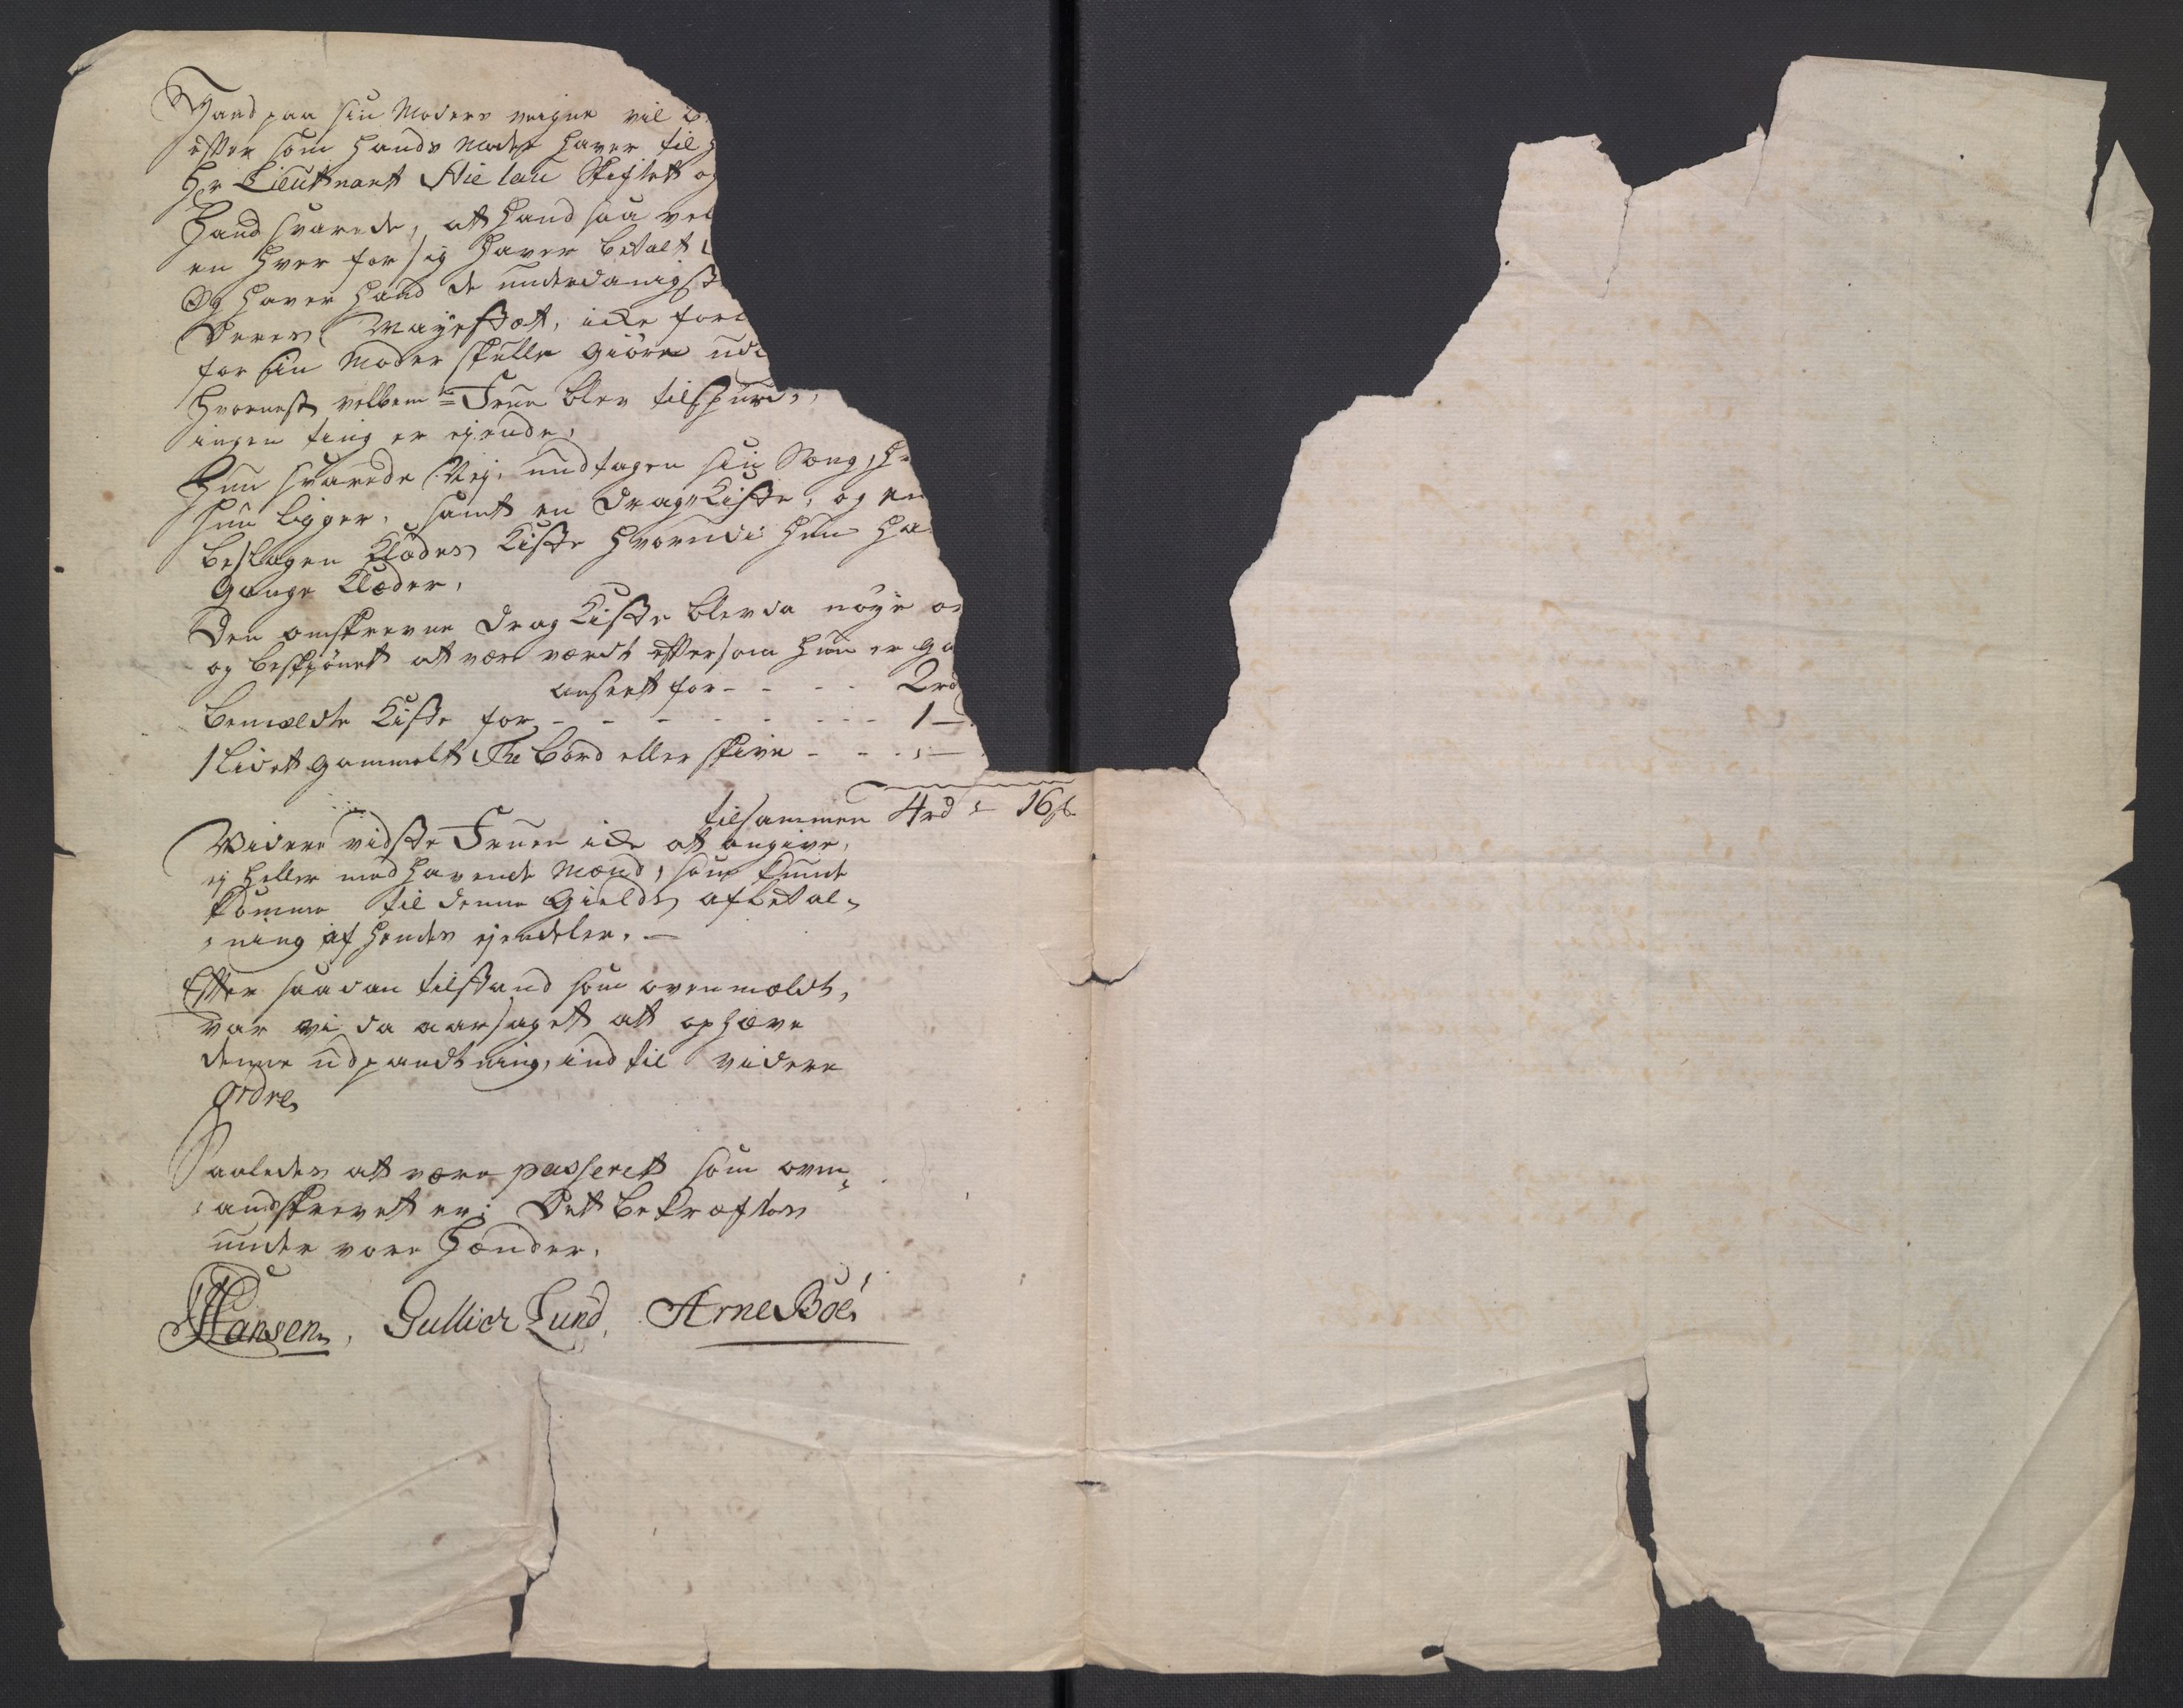 Hand paa sin Moders veigne vil
efter som hands Moder haver til
Hr Lieutnant Nielau Skiftet og
Hand svarede, at hand saa vel
en hver for sig haver betalt
Og haver hand de underdanigst
Deres Mayestæt, icke
for sin Moder skulle giöre
hvornest velbemte Frue blev tilspurt,
ingen ting er ejende,
Hun svarede Nej, undtagen sin Seng,
hun ligger, samt en Dragkiste, og en
beslagen Klædes Kiste hvorudi hun
gange Klæder,
Den omskrevne Drag Kiste blev da nöye
og beskjönnet at være værdt eftersom hun er
ansett for - - - - 2rd
bemeldte Kiste for - - - - - - - 1 —
1 lidet gammelt The bord eller skive - - -
tilsammen 4rd - 16s
Videre vidste Fruen icke at angive,
ej heller med havende Mænd, som kunde
komme til denne Gields afbetal-
ning af hendes ejendeler. —
Efter saadan tilstand som ovenmeldt,
var vi da aarsaget att ophæve
denne udpandtning, ind til videre
Ordre
Saaledes att være passeret som oven-
andskrevet er; Dett bekræftes
under vore Hænder,
Hansen, Gullich Lund, Arne Böe